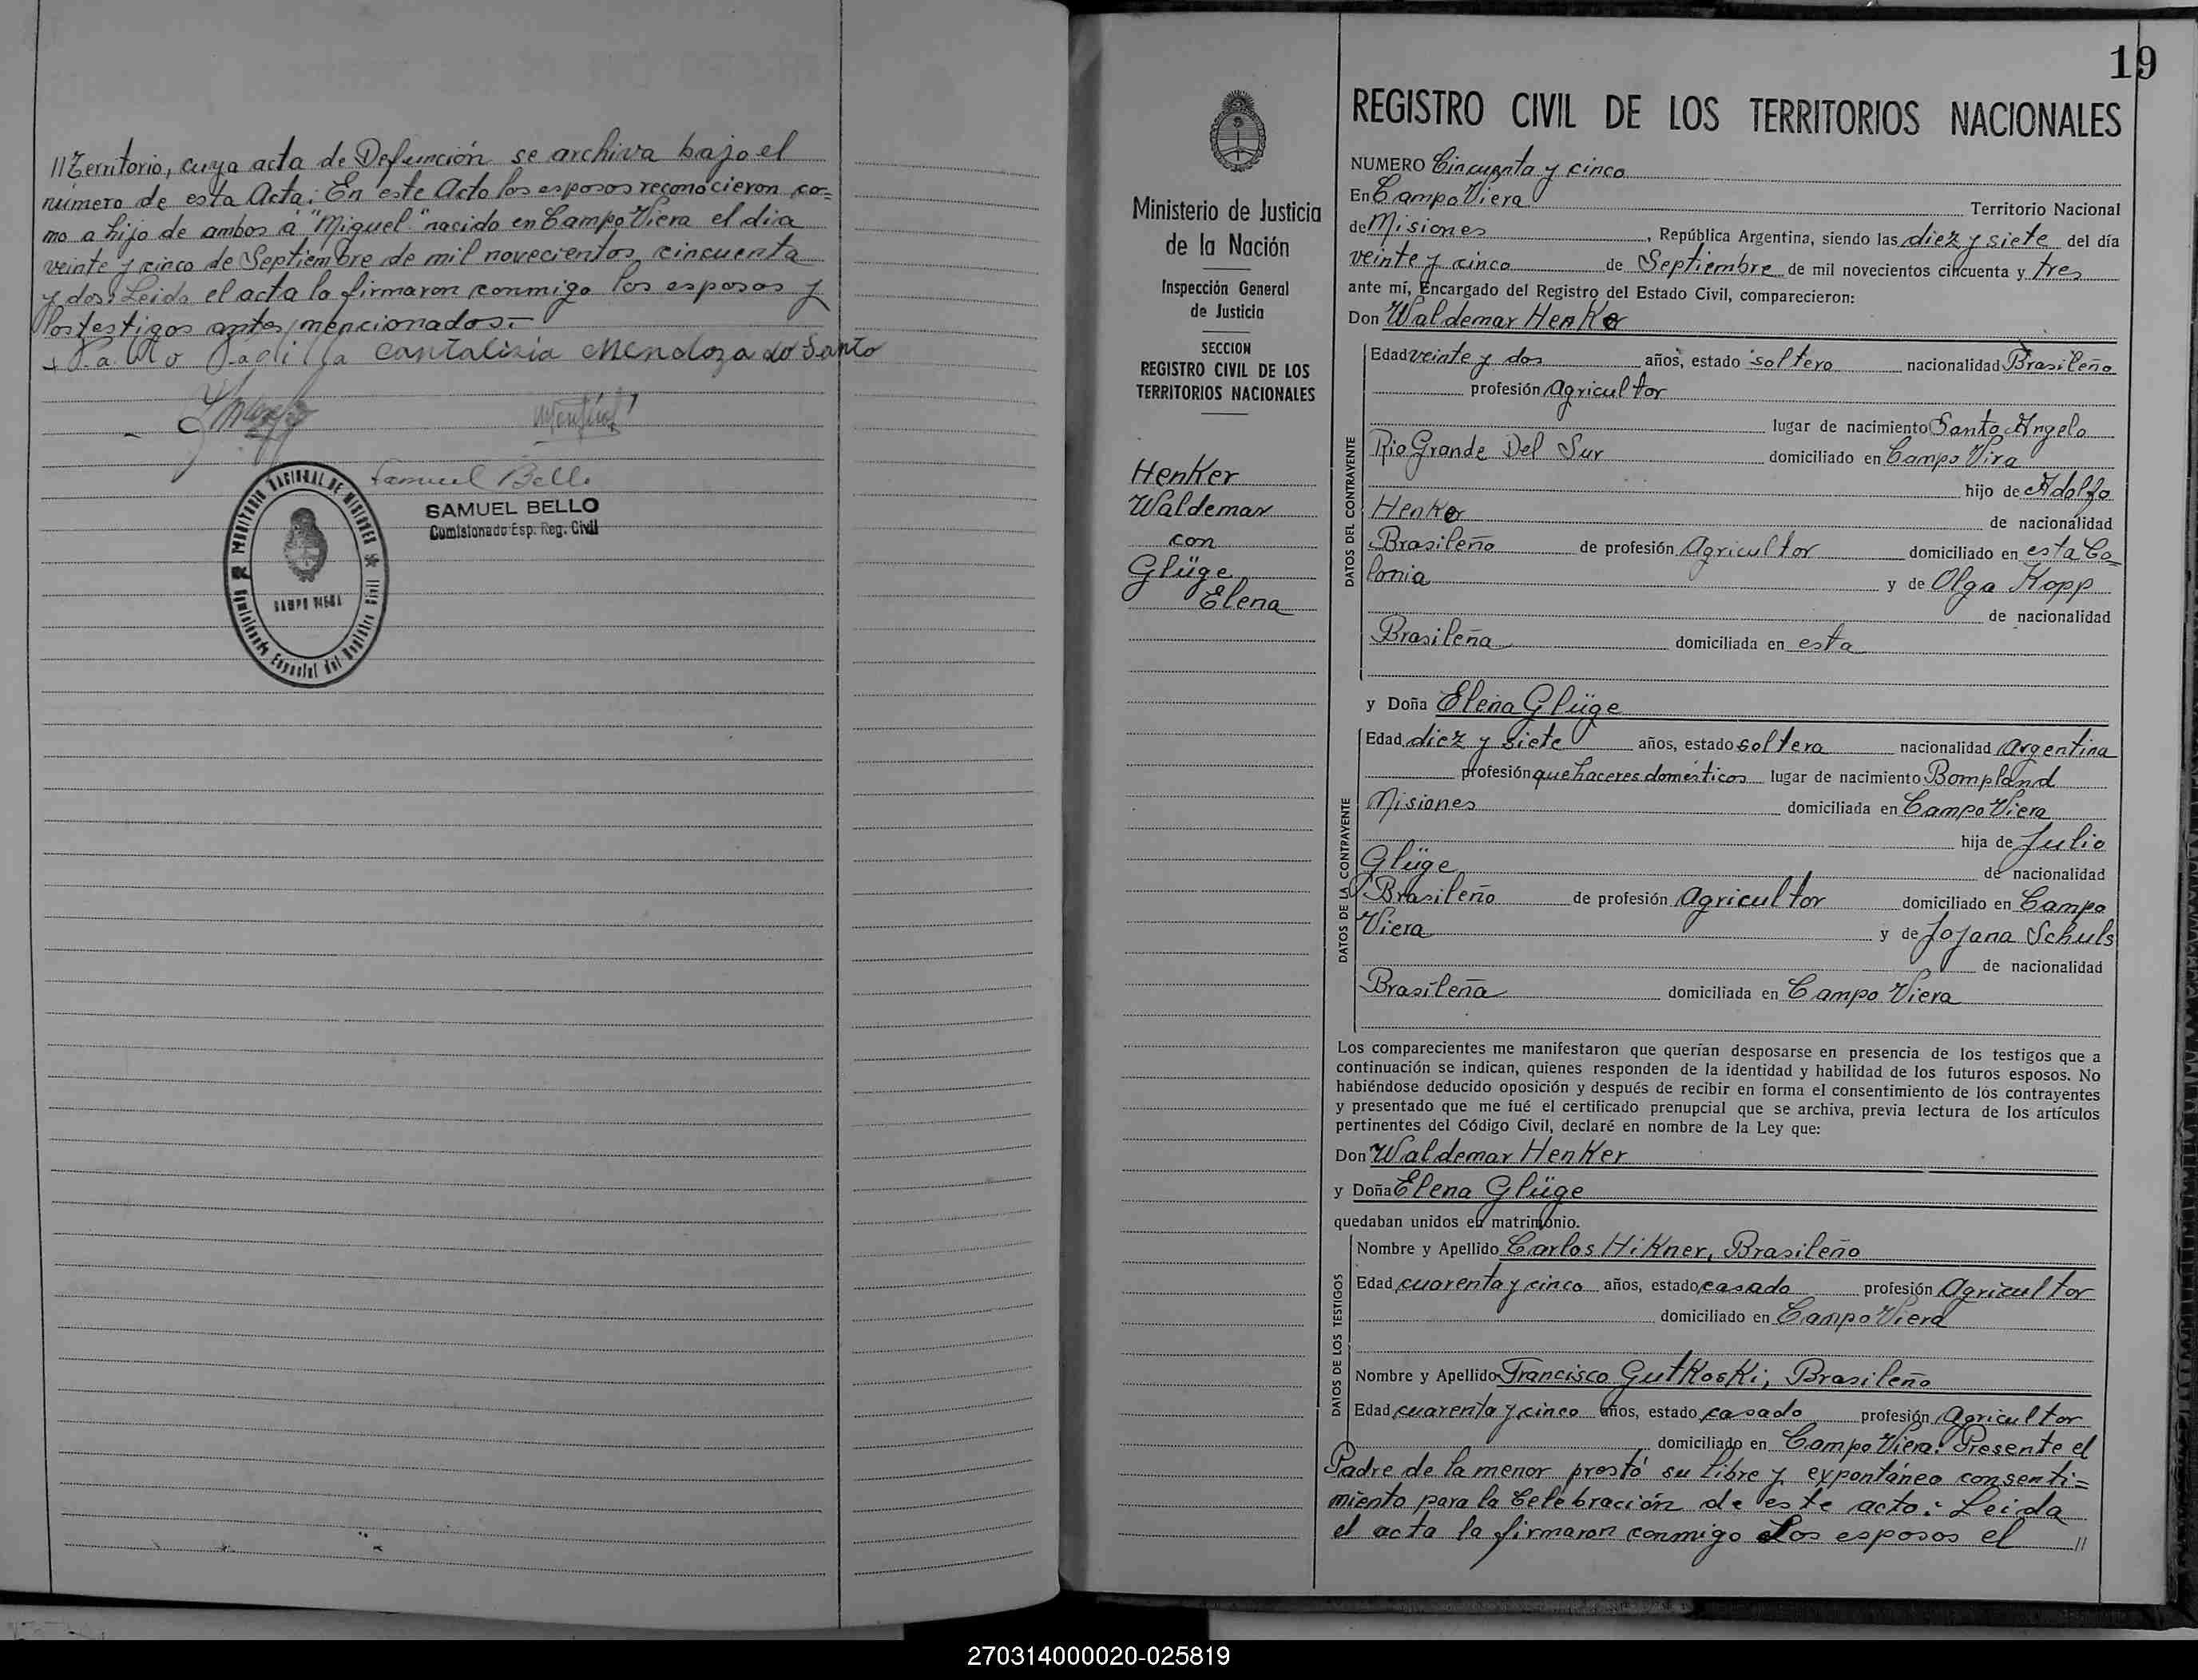 //Territorio, cuya acta de Defunción se archiva bajo el
número de esta Acta: En este Acto los esposos reconocieron co=
mo a hijo de ambos á "Miguel" nacido en Campo Viera el dia
veinte y cinco de Septiembre de mil novecientos cincuenta
y dos: Leida el acta la firmaron conmigo los esposos y
los testigos antes mencionados.-
Cantalizia Mendoza do Santo
Samuel Bello
SAMUEL BELLO
Comisionado Esp. Reg. Civil
TERRITORIO NACIONAL DE MISIONES
CAMPO VIERA
Comisionado Especial del Registro Civil
19
Ministerio de Justicia
de la Nación
Inspección General
de Justicia
SECCION
REGISTRO CIVIL DE LOS
TERRITORIOS NACIONALES
Henker
Waldemar
con
Glüge
Elena
REGISTRO CIVIL DE LOS TERRITORIOS NACIONALES
NUMERO Cincuenta y cinco
En Campo Viera Territorio Nacional
de Misiones, República Argentina, siendo las diez y siete del día
veinte y cinco de Septiembre de mil novecientos cincuenta y tres
ante mí, Encargado del Registro del Estado Civil, comparecieron:
Don Waldemar Henker
DATOS DEL CONTRAYENTE
Edad veinte y dos años, estado soltero nacionalidad Brasileño
profesión Agricultor
lugar de nacimiento Santo Angelo
Rio Grande Del Sur domiciliado en Campo Vira
hijo de Adolfo
Henker de nacionalidad
Brasileño de profesión Agricultor domiciliado en esta Co=
lonia y de Olga Kopp
de nacionalidad
Brasileña domiciliada en esta
y Doña Elena Glüge
DATOS DE LA CONTRAYENTE
Edad diez y siete años, estado soltera nacionalidad Argentina
profesión quehaceres domésticos lugar de nacimiento Bompland
Misiones domiciliada en Campo Viera
hija de Julio
Glüge de nacionalidad
Brasileño de profesión Agricultor domiciliado en Campo
Viera y de Jojana Schuls
de nacionalidad
Brasileña domiciliada en Campo Viera
Los comparecientes me manifestaron que querían desposarse en presencia de los testigos que a
continuación se indican, quienes responden de la identidad y habilidad de los futuros esposos. No
habiéndose deducido oposición y después de recibir en forma el consentimiento de lós contrayentes
y presentado que me fué el certificado prenupcial que se archiva, previa lectura de los artículos
pertinentes del Código Civil, declaré en nombre de la Ley que:
Don Waldemar Henker
y Doña Elena Glüge
quedaban unidos en matrimonio.
DATOS DE LOS TESTIGOS
Nombre y Apellido Carlos Hikner, Brasileño
Edad cuarenta y cinco años, estado casado profesión Agricultor
domiciliado en Campo Viera
Nombre y Apellido Francisco Gutkoski, Brasileño
Edad cuarenta y cinco años, estado casado profesión Agricultor
domiciliado en Campo Viera: Presente el
Padre de la menor prestó su libre y expontáneo consenti=
miento para la Celebración de este acto: Leida
el acta la firmaron conmigo Los esposos el //
270314000020-025819